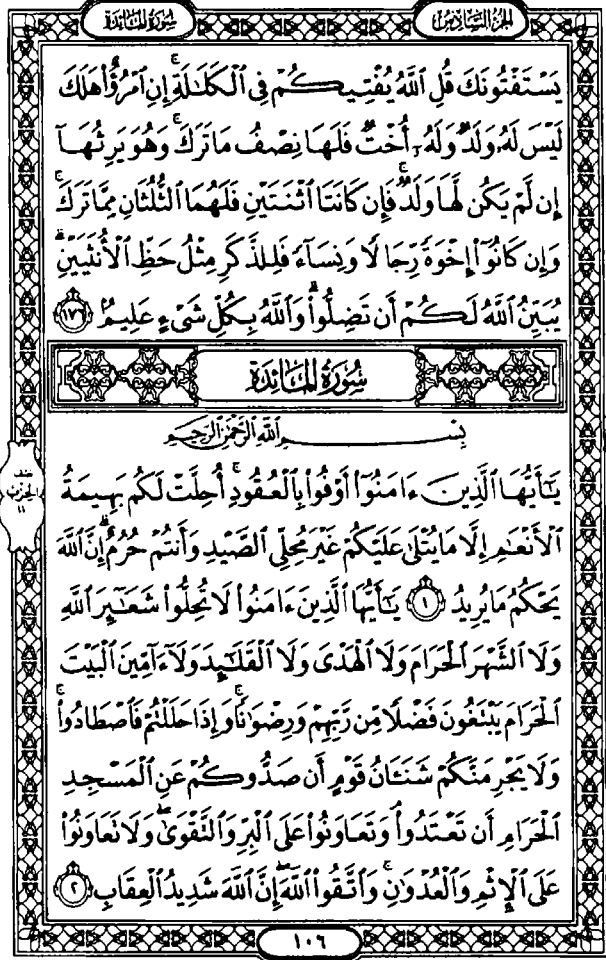 الجزء السادس
سورة المائدة
يَسْتَفْتُونَكَ قُلِ ٱللَّهُ يُفْتِيكُمْ فِى ٱلْكَلَٰلَةِ ۚ إِنِ ٱمْرُؤٌا۟ هَلَكَ
لَيْسَ لَهُۥ وَلَدٌ وَلَهُۥٓ أُخْتٌ فَلَهَا نِصْفُ مَا تَرَكَ ۚ وَهُوَ يَرِثُهَآ
إِن لَّمْ يَكُن لَّهَا وَلَدٌ ۚ فَإِن كَانَتَا ٱثْنَتَيْنِ فَلَهُمَا ٱلثُّلُثَانِ مِمَّا تَرَكَ ۚ
وَإِن كَانُوٓا۟ إِخْوَةً رِّجَالًا وَنِسَآءً فَلِلذَّكَرِ مِثْلُ حَظِّ ٱلْأُنثَيَيْنِ ۗ
يُبَيِّنُ ٱللَّهُ لَكُمْ أَن تَضِلُّوا۟ ۗ وَٱللَّهُ بِكُلِّ شَىْءٍ عَلِيمٌۢ ١٧٦
سُورَةُ المَائِدَةِ
بِسْمِ ٱللَّهِ ٱلرَّحْمَٰنِ ٱلرَّحِيمِ
يَٰٓأَيُّهَا ٱلَّذِينَ ءَامَنُوٓا۟ أَوْفُوا۟ بِٱلْعُقُودِ ۚ أُحِلَّتْ لَكُم بَهِيمَةُ
ٱلْأَنْعَٰمِ إِلَّا مَا يُتْلَىٰ عَلَيْكُمْ غَيْرَ مُحِلِّى ٱلصَّيْدِ وَأَنتُمْ حُرُمٌ ۗ إِنَّ ٱللَّهَ
يَحْكُمُ مَا يُرِيدُ ١ يَٰٓأَيُّهَا ٱلَّذِينَ ءَامَنُوا۟ لَا تُحِلُّوا۟ شَعَٰٓئِرَ ٱللَّهِ
وَلَا ٱلشَّهْرَ ٱلْحَرَامَ وَلَا ٱلْهَدْىَ وَلَا ٱلْقَلَٰٓئِدَ وَلَآ ءَآمِّينَ ٱلْبَيْتَ
ٱلْحَرَامَ يَبْتَغُونَ فَضْلًا مِّن رَّبِّهِمْ وَرِضْوَٰنًا ۚ وَإِذَا حَلَلْتُمْ فَٱصْطَادُوا۟ ۚ
وَلَا يَجْرِمَنَّكُمْ شَنَـَٔانُ قَوْمٍ أَن صَدُّوكُمْ عَنِ ٱلْمَسْجِدِ
ٱلْحَرَامِ أَن تَعْتَدُوا۟ ۘ وَتَعَاوَنُوا۟ عَلَى ٱلْبِرِّ وَٱلتَّقْوَىٰ ۖ وَلَا تَعَاوَنُوا۟
عَلَى ٱلْإِثْمِ وَٱلْعُدْوَٰنِ ۚ وَٱتَّقُوا۟ ٱللَّهَ ۖ إِنَّ ٱللَّهَ شَدِيدُ ٱلْعِقَابِ ٢
نصف
الحزب
١١
١٠٦